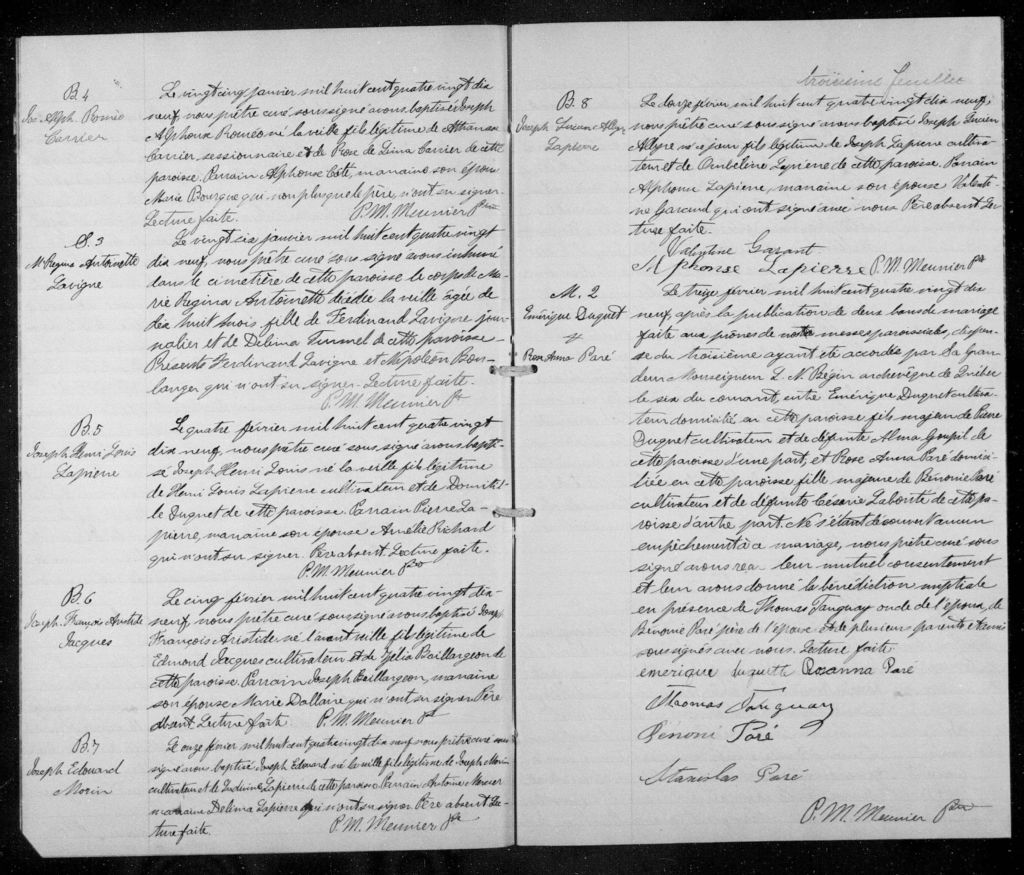 B. 4
Jos. Alph. Roméo
Carrier
Le vingt cinq janvier mil huit cent quatre vingt dix
neuf, nous prêtre curé soussigné avons baptisé Joseph
Alphonse Roméo né la veille fils légitime de Athanase
Carrier, sessionnaire et de Rose de Lima Carrier de cette
paroisse. Parrain Alphonse Coté, marraine son épouse
Marie Bourque qui non plus que le père, n'ont su signer.
Lecture faite. P. M. Meunier Ptre
S. 3
M. Regina Antoinette
Lavigne
Le vingt six janvier mil huit cent quatre vingt
dix neuf, nous prêtre curé soussigné avons inhumé
dans le cimetière de cette paroisse le corps de Ma-
rie Regina Antoinette décédée la veille âgée de
dix huit mois, fille de Ferdinand Lavigne jour-
nalier et de Delima de cette paroisse.
Présents Ferdinand Lavigne et Napoléon Bou-
langer qui n'ont su signer. Lecture faite.
P. M. Meunier Ptr
B. 5
Joseph Henri Louis
Lapierre
Le quatre février mil huit cent quatre vingt
dix neuf, nous prêtre curé soussigné avons bapti-
sé Joseph Henri Louis né la veille fils légitime
de Henri Louis Lapierre cultivateur et de Domitil-
le Duquet de cette paroisse. Parrain Pierre La-
pierre, marraine son épouse Amélie Richard
qui n'ont su signer. Père absent. Lecture faite.
P. M. Meunier Ptre
B. 6
Joseph François Aristide
Jacques
Le cinq février mil huit cent quatre vingt dix
neuf, nous prêtre curé soussigné avons baptisé Joseph
François Aristide né l'avant veille fils légitime de
Edmond Jacques cultivateur et de Zélia Baillargeon de
cette paroisse. Parrain Joseph Baillargeon, marraine
son épouse Marie Dallaire qui n'ont su signer. Père
absent. Lecture faite. P. M. Meunier Ptr
B. 7
Joseph Edouard
Morin
Le onze février mil huit cent quatre vingt dix neuf nous prêtre curé sous
signé avons baptisé Joseph Edouard né la veille fils légitime de Joseph Morin
cultivateur et de Lapierre de cette paroisse Parrain Antoine Mercier
marraine Delima Lapierre qui n'ont su signer Père absent Lec-
ture faite. P. M. Meunier Ptre
troisième feuillet
B. 8
Joseph Lucien Alyre
Lapierre
Le douze février mil huit cent quatre vingt dix neuf,
nous prêtre curé soussigné avons baptisé Joseph Lucien
Alyre né ce jour fils légitime de Joseph Lapierre cultiva-
teur et de de cette paroisse. Parrain
Alphonse Lapierre, marraine son épouse Valenti-
ne Garaud qui ont signé avec nous Père absent. Lec-
ture faite.
Valentine Garant
Alphonse Lapierre P. M. Meunier Ptr
M. 2
Emérique Duquet
&
Rose Anna Paré
Le treize février mil huit cent quatre vingt dix
neuf, après la publication de deux bans de mariage
faite aux prônes de notre messe paroissiale, dispen-
se du troisième ayant été accordée par Sa Gran-
deur Monseigneur L. N. Bégin archevêque de Québec
le six du courant, entre Emérique Duquet cultiva-
teur domicilié en cette paroisse fils majeur de Pierre
Duquet cultivateur et de défunte Alma Goupil de
cette paroisse d'une part, et Rose Anna Paré domici-
liée en cette paroisse fille majeure de Bénonie Paré
cultivateur et de défunte Césarie Labonté de cette pa-
roisse d'autre part. Ne s'étant découvert aucun
empêchement à ce mariage, nous prêtre curé sous
signé avons reçu leur mutuel consentement
et leur avons donné la bénédiction nuptiale
en présence de Thomas Tanguay oncle de l'époux, de
Bénonie Paré père de l'épouse et de plusieurs parents et amis
soussignés avec nous. Lecture faite.
emerique duquette Rosanna Paré
Thomas Tanguay
Benoni Paré
Stanislas Paré
P. M. Meunier Ptre